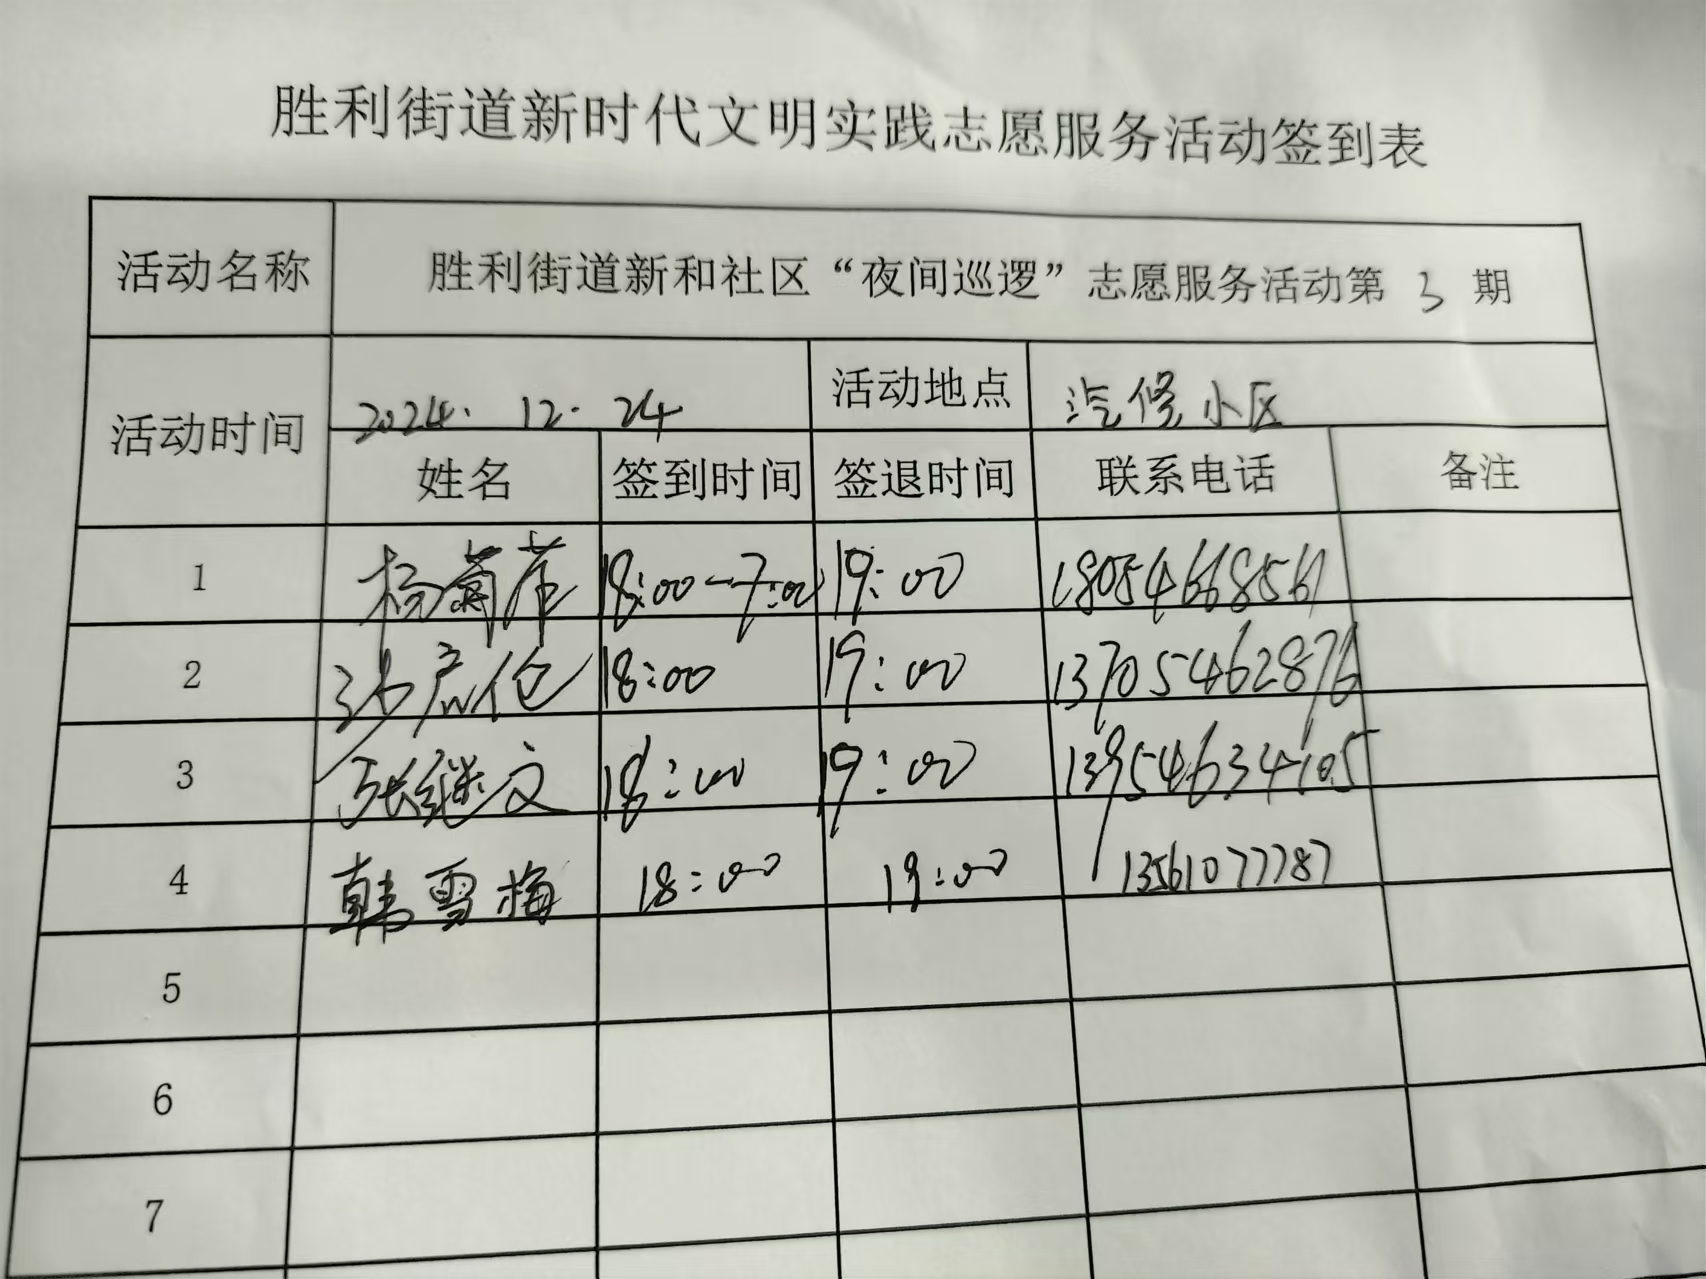 胜利街道新时代文明实践志愿服务活动签到表
活动名称 胜利街道新和社区“夜间巡逻”志愿服务活动第 3 期
活动时间 2024.12.24 活动地点 汽修小区
姓名 签到时间 签退时间 联系电话 备注
1 杨菊萍 18:00-7:00 19:00 18054668561
2 18:00 19:00 13705462876
3 张继文 18:00 19:00 13954634105
4 韩雪梅 18:00 19:00 13561077787
5
6
7